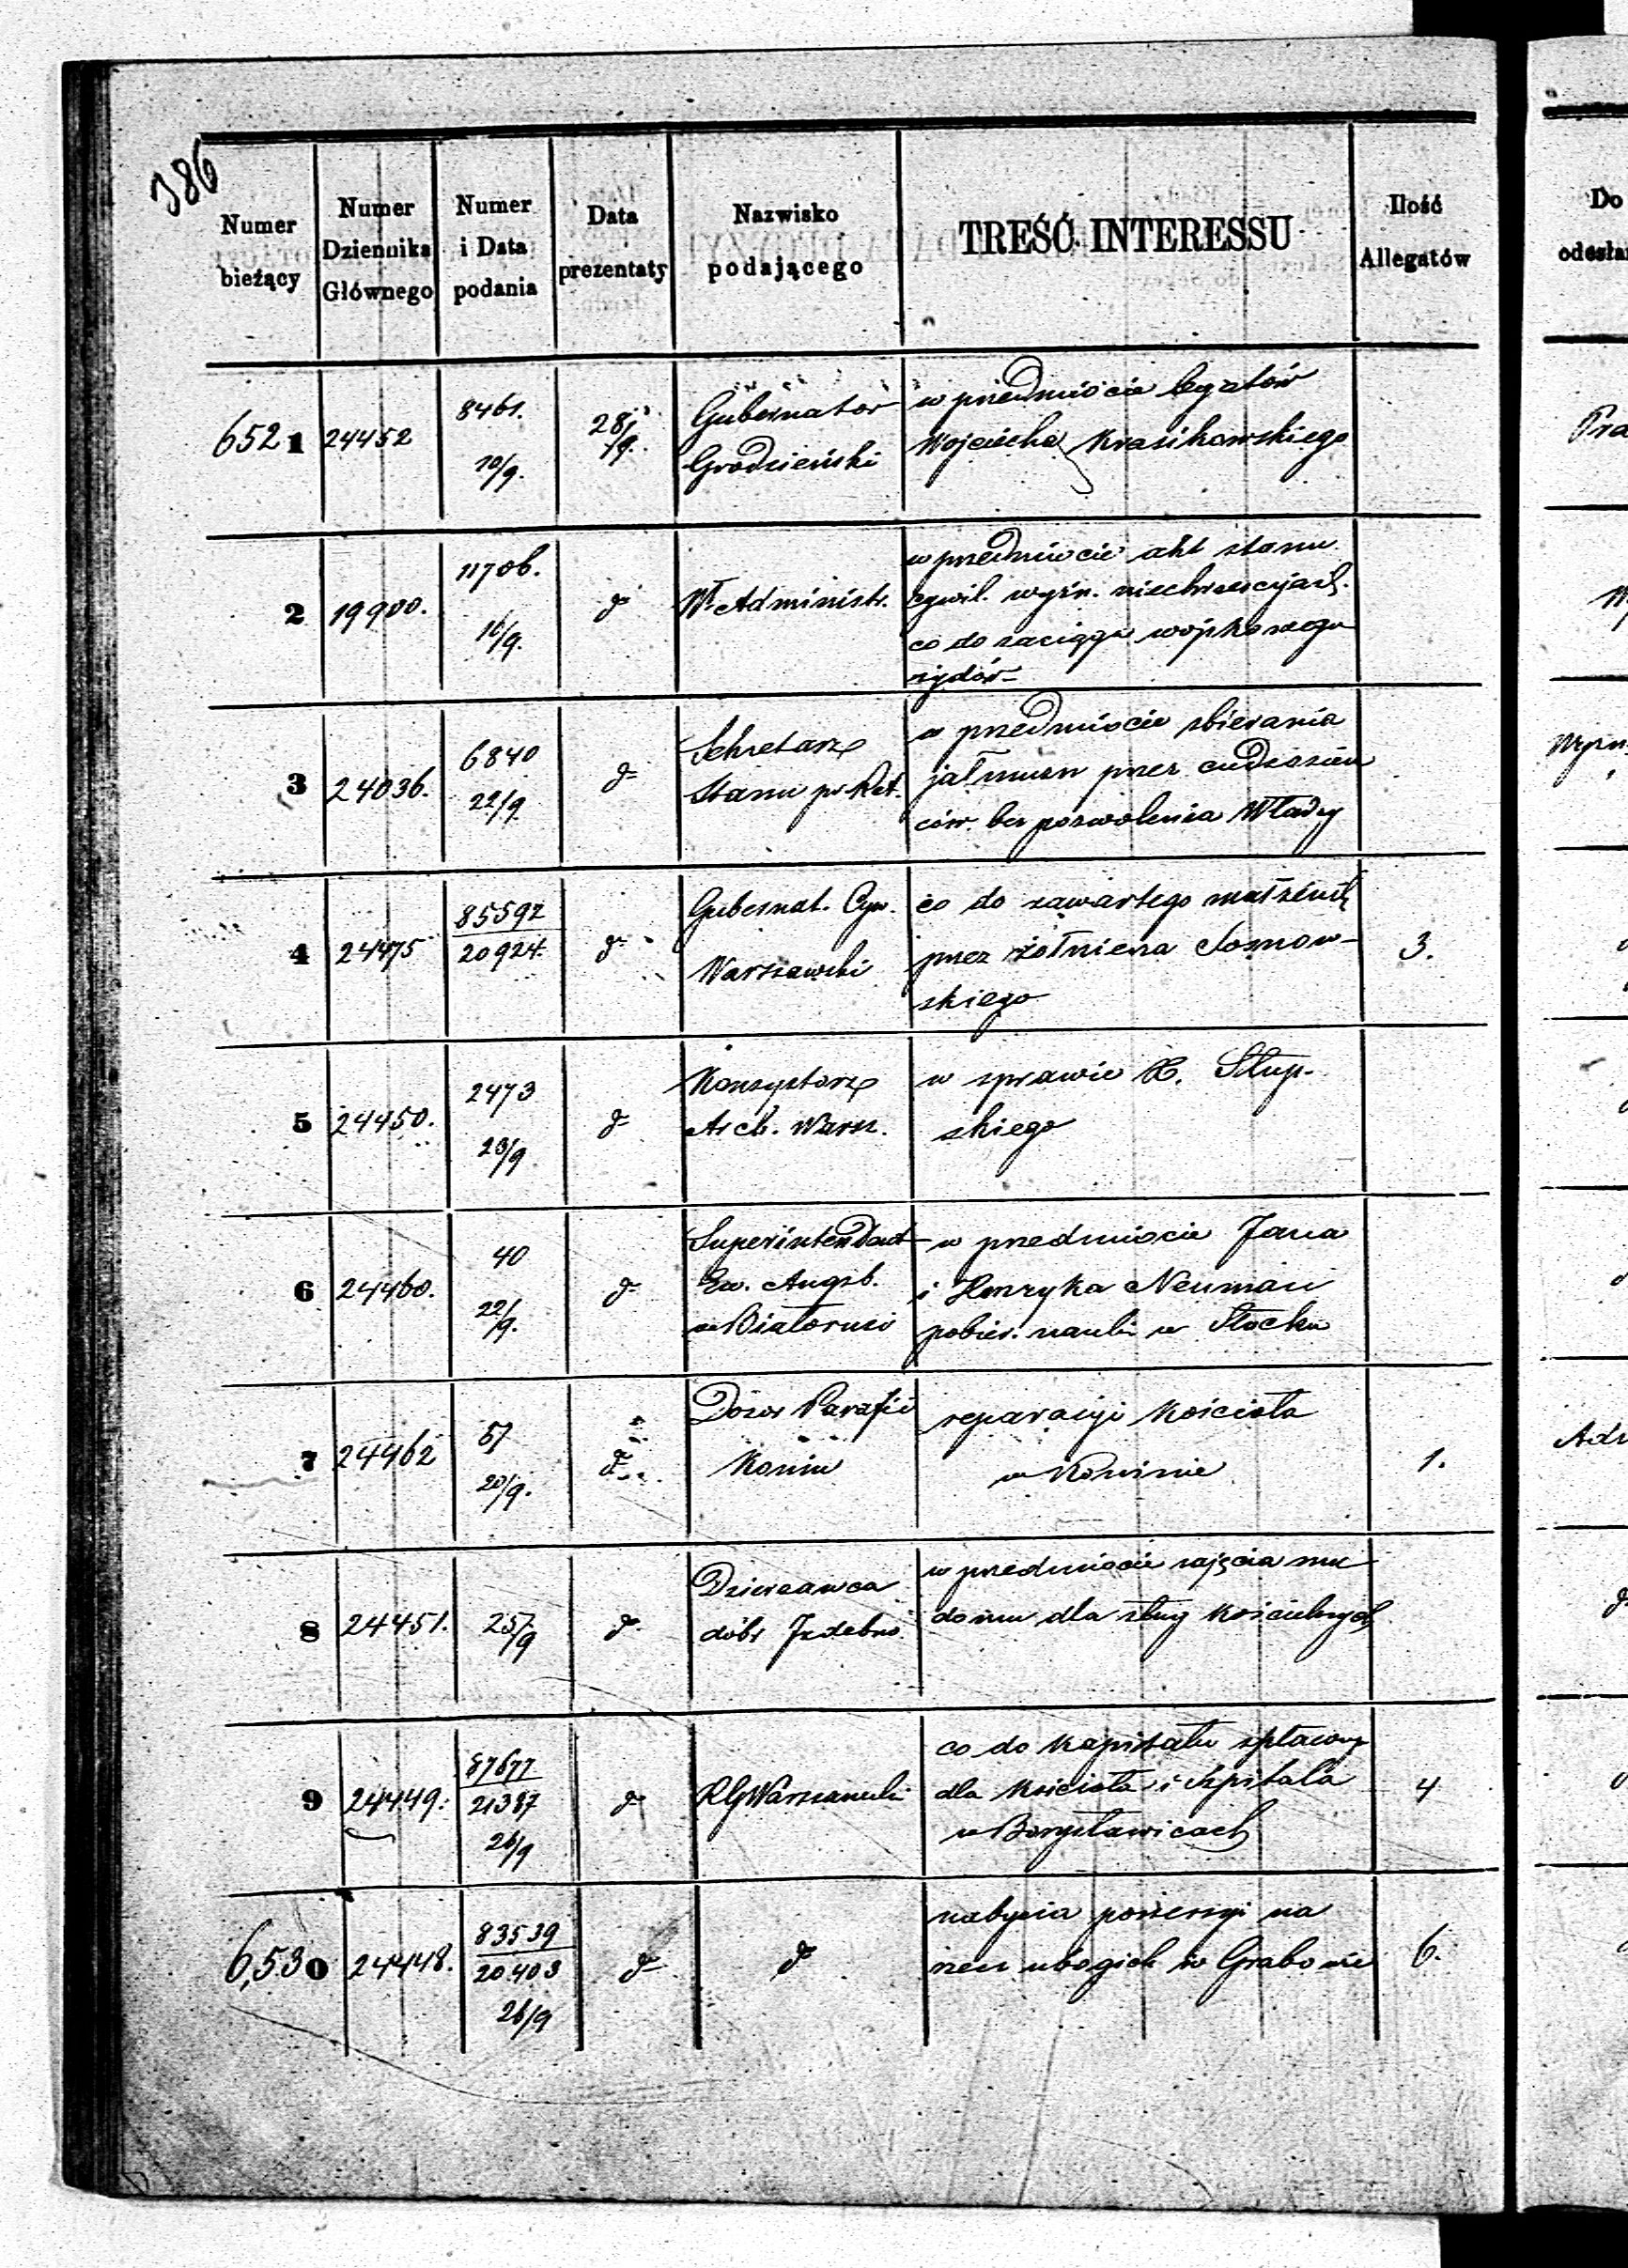 386
Numer bieżący
Numer Dziennika Głównego
Numer i Data podania
Data prezentaty
Nazwisko podającego
TREŚĆ INTERESSU
Ilość Allegatów
Do
6521
24452
8461.
10/9.
28/9.
Gubernator
Grodzieński
w przedmiocie legatów
Wojciecha Krasikowskiego
2
19900.
11706.
16/9.
d°
W. Administr.
w przedmiocie akt stanu
cywil. wyzn. niechrzescyjańs.
co do zaciągu wojskowego
żydów
3
24036.
6840
22/9
d°
Sekretarz
Stanu
w przedmiocie zbierania
jałmużn przez cudzoziem
ców. bez pozwolenia Władzy
4
24475
85592
20924.
d°
Gubernat. Cyw.
Warszawski
co do zawartego małżeńst.
przez żołnierza Sosnow-
skiego
3.
5
24450.
2473
23/9
d°
Konsystorz
Arch. Warsz.
w sprawie X. Słup-
skiego
6
24460.
40
22/9.
d°
Superintendent
Ew. Augsb.
w przedmiocie Jana
i Henryka Neuman
pobier. nauki w Płocku
7
24462
57
20/9.
d°
Dozór Parafii
Konin
reparacyi Kościoła
w Koninie
1.
8
24451.
25/9
d°
Dzierzawca
dóbr Izdebno
w przedmiocie zajęcia mu
domu dla sług kościelnych
9
24449.
87677
21387
26/9
d°
RGWarszawski
co do kapitału spłacony
dla Kościoła i Szpitala
w Borysławicach
4
6,530
24448.
83539
20403
26/9
d°
d°
nabycia possessyi na
rzecz ubogich w Grabowie
6.